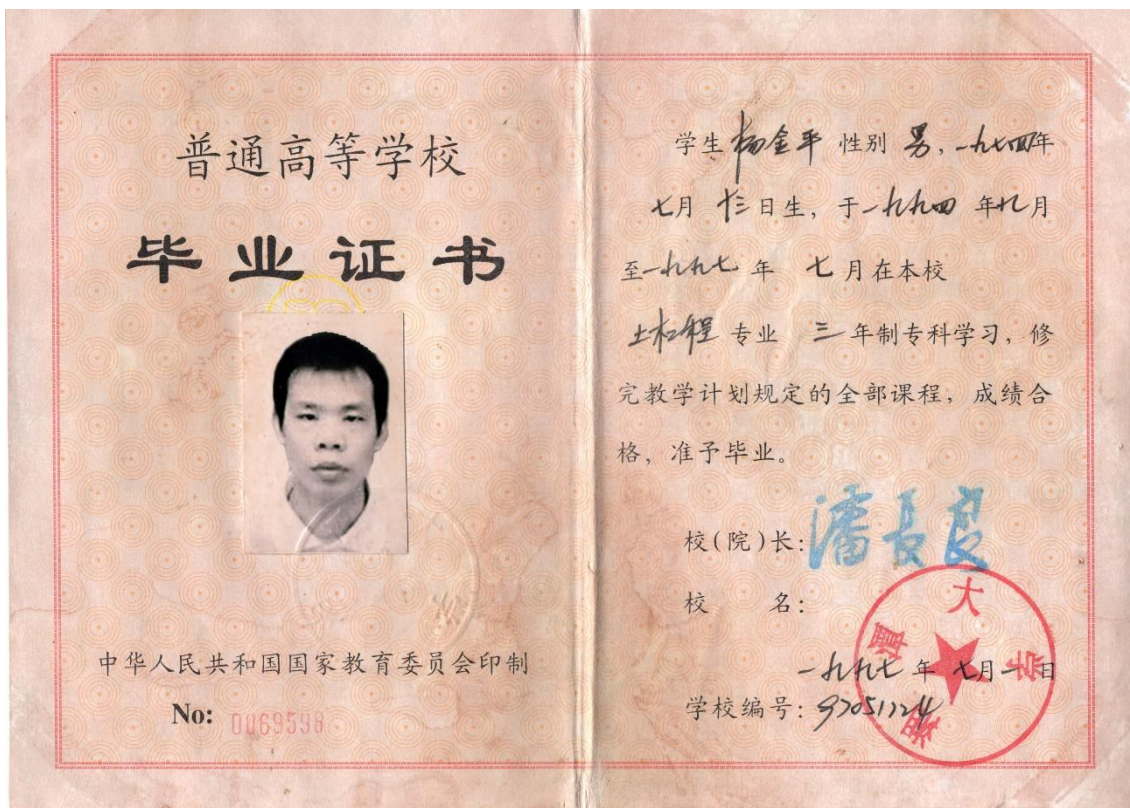 普通高等学校
毕业证书
中华人民共和国国家教育委员会印制
No: 0069598
学生 杨金平 性别 男, 一九七四年
七月 十三日生, 于一九九四 年九月
至一九九七 年 七月在本校
土木工程 专业 三 年制专科学习, 修
完教学计划规定的全部课程, 成绩合
格, 准予毕业。
校(院)长: 潘长良
校 名:
湘潭大学
一九九七 年 七月一日
学校编号: 97051124